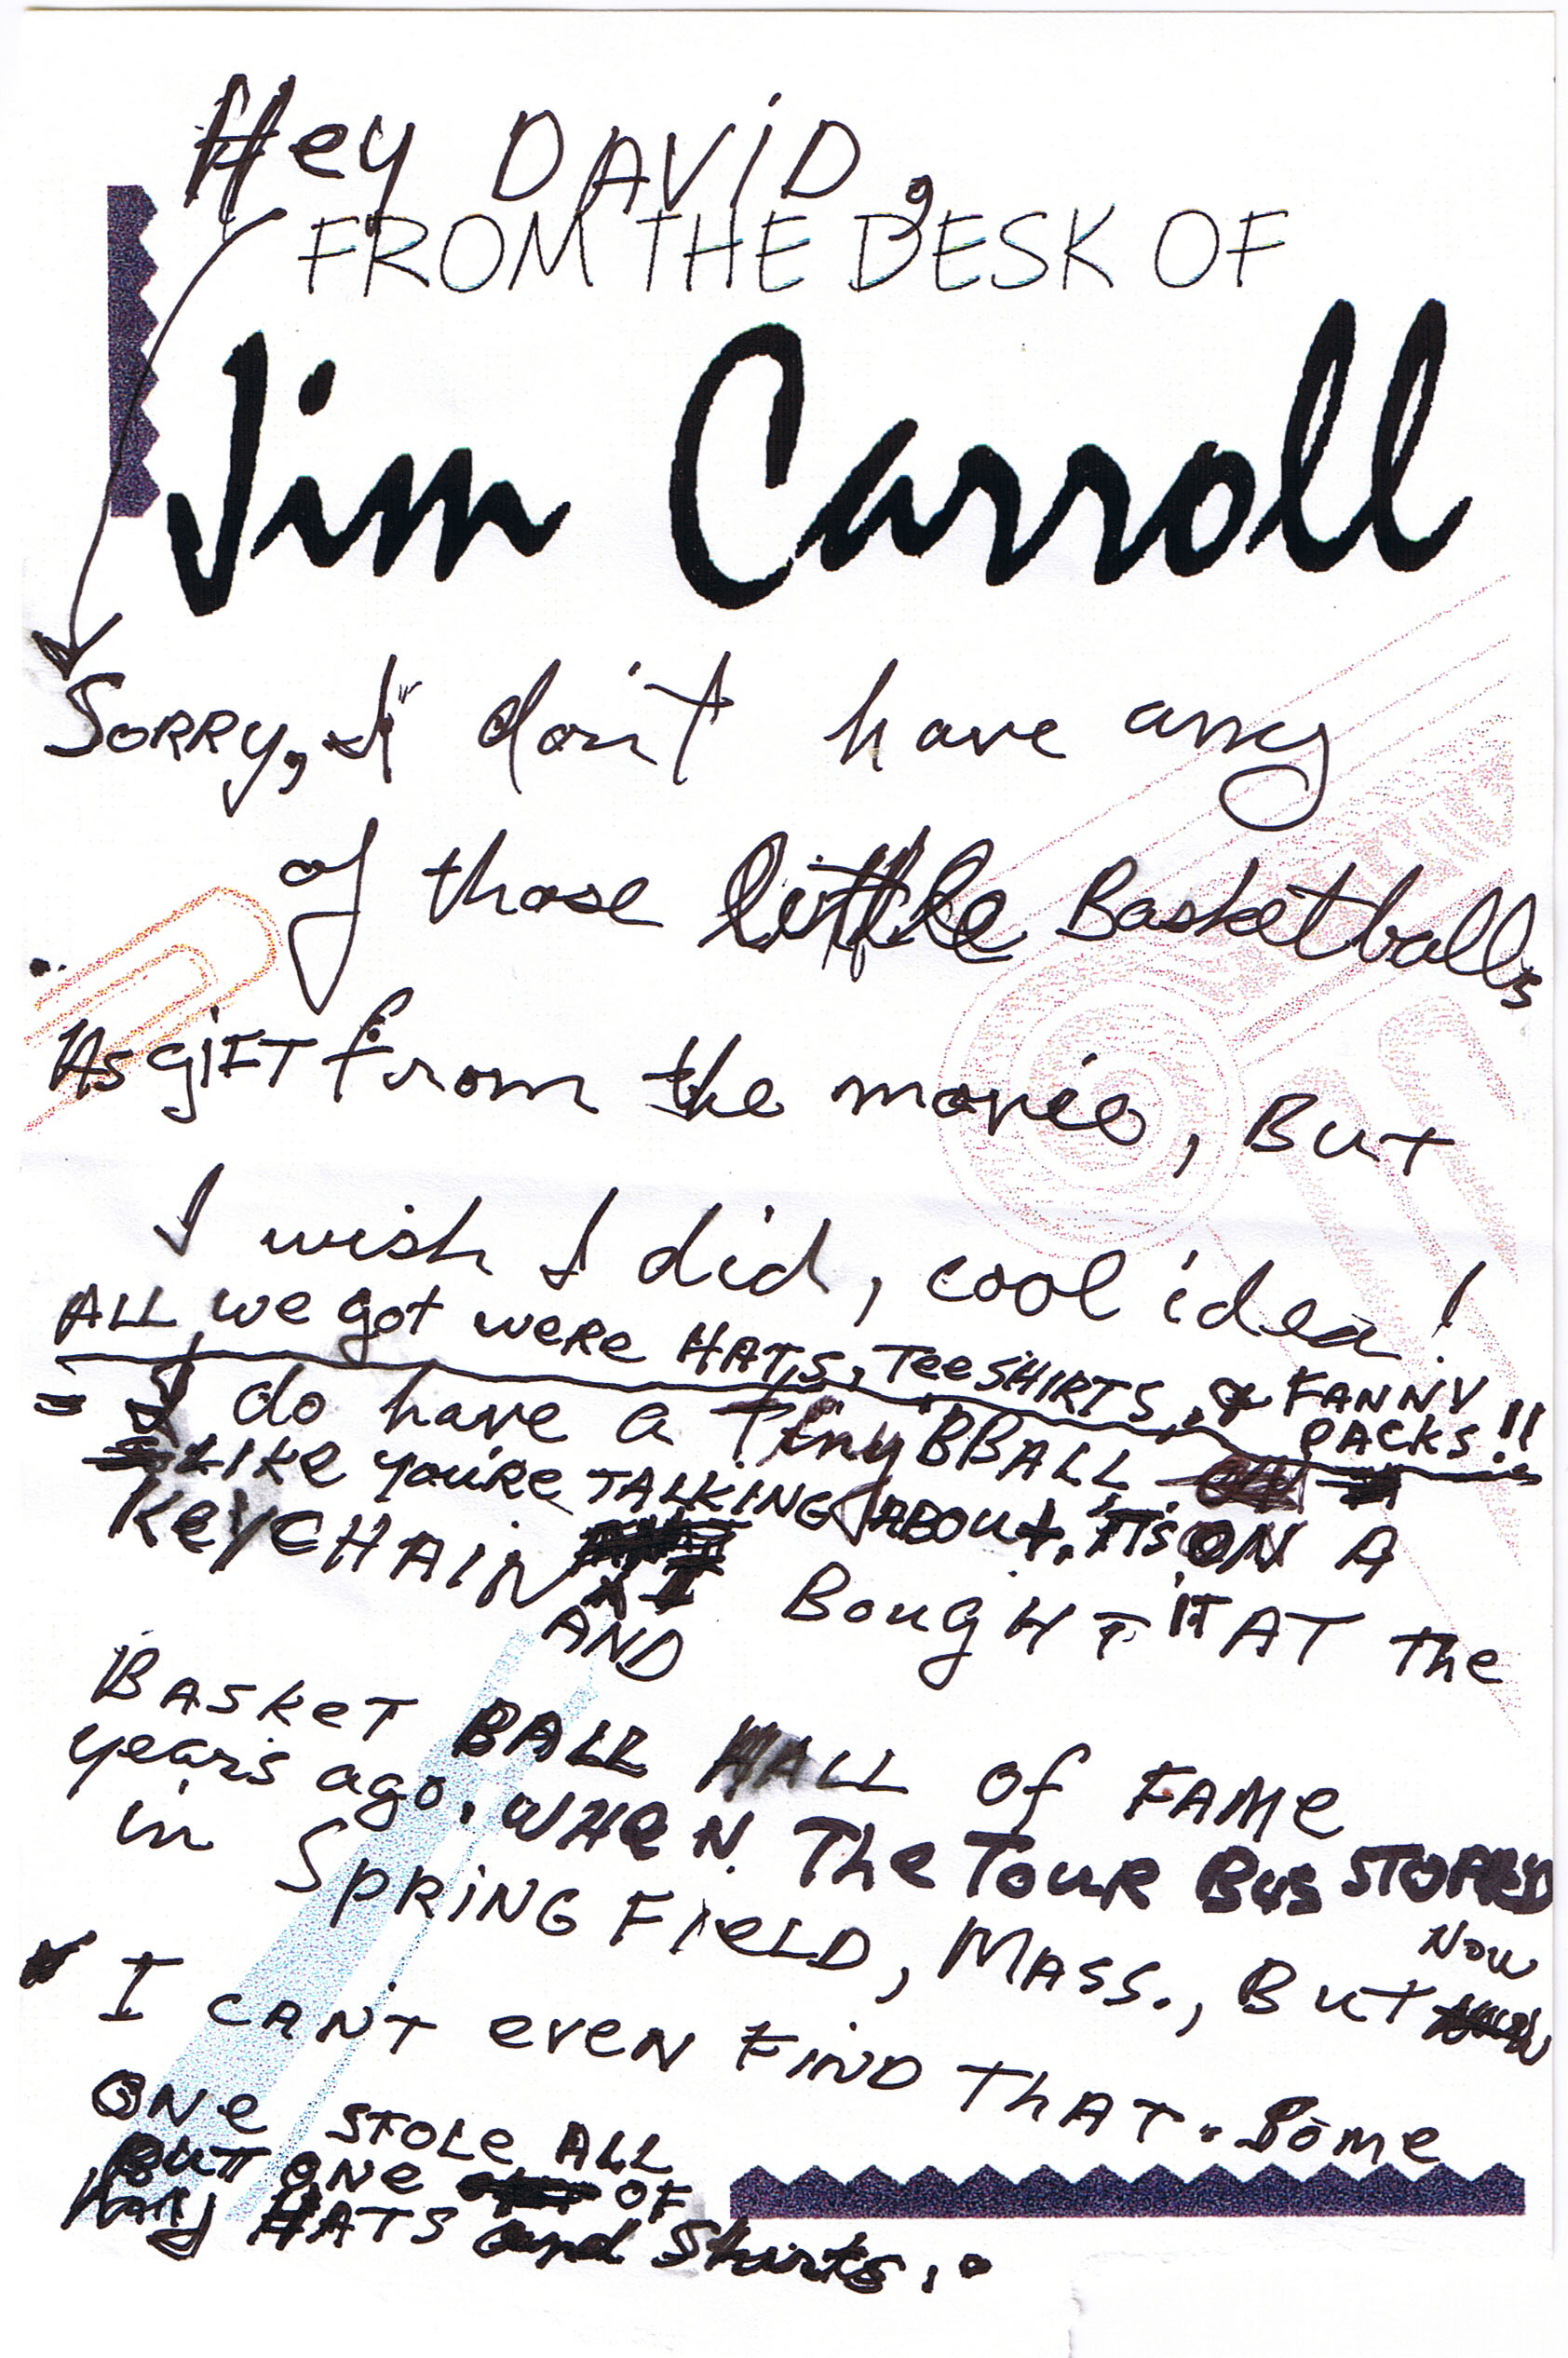 Hey DAViD,
FROM THE DESK OF
Jim Carroll
SORRY, I don't have any
of those little Basketballs
As giFT from the movie, But
I wish I did, cool idea!
ALL we got weRe HATS, TeeSHIRTS, & FANNY
PACKS!!
= I do have a Tiny BBALL
LIKe you're TALKING ABOUT, IT'S ON A
KeYCHAiN
AND BougHT IT AT The
BASKeT BALL HALL of FAMe
years ago, WHeN The TouR Bus STOPPED
in SPRiNG FieLD, MASS., BuT Now
I CAN'T eveN FiND ThAT. Some
ONe STOLe ALL
BUT ONe OF
my HATS and Shirts.